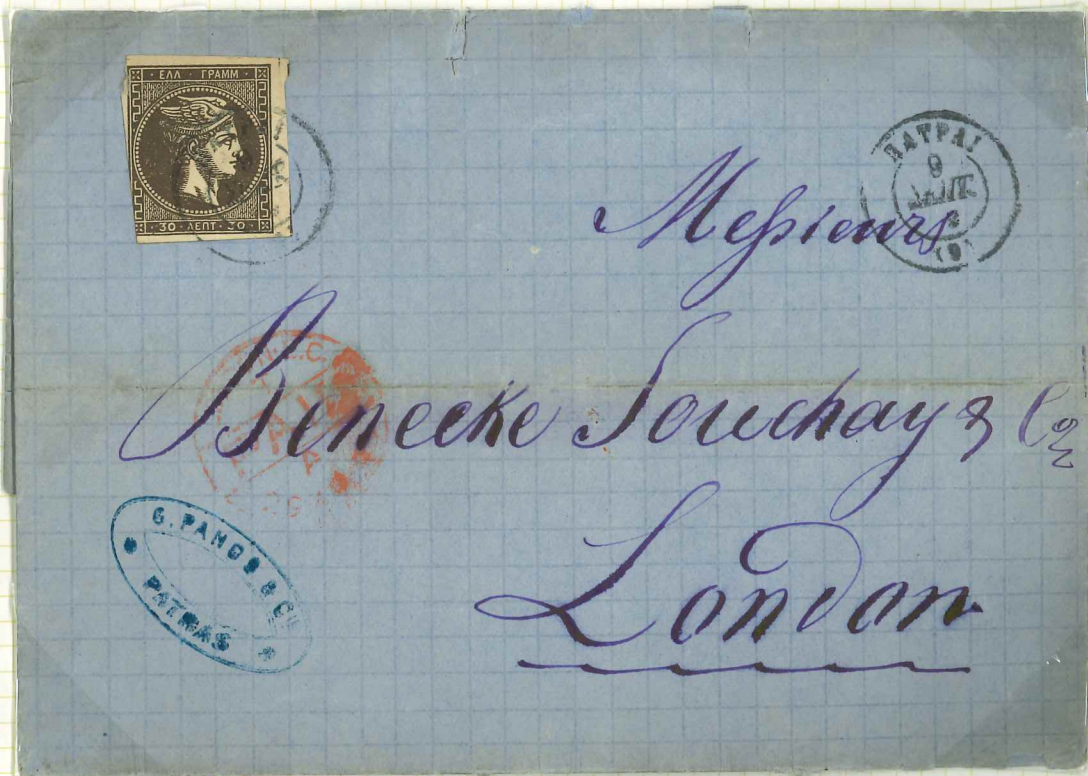 ΕΛΛ · ΓΡΑΜΜ
30 · ΛΕΠΤ · 30
ΠΑΤΡΑΙ
9
(9)
Messieurs
Benecke Souchay & Co
London
G. PANOS & Co
PATRAS